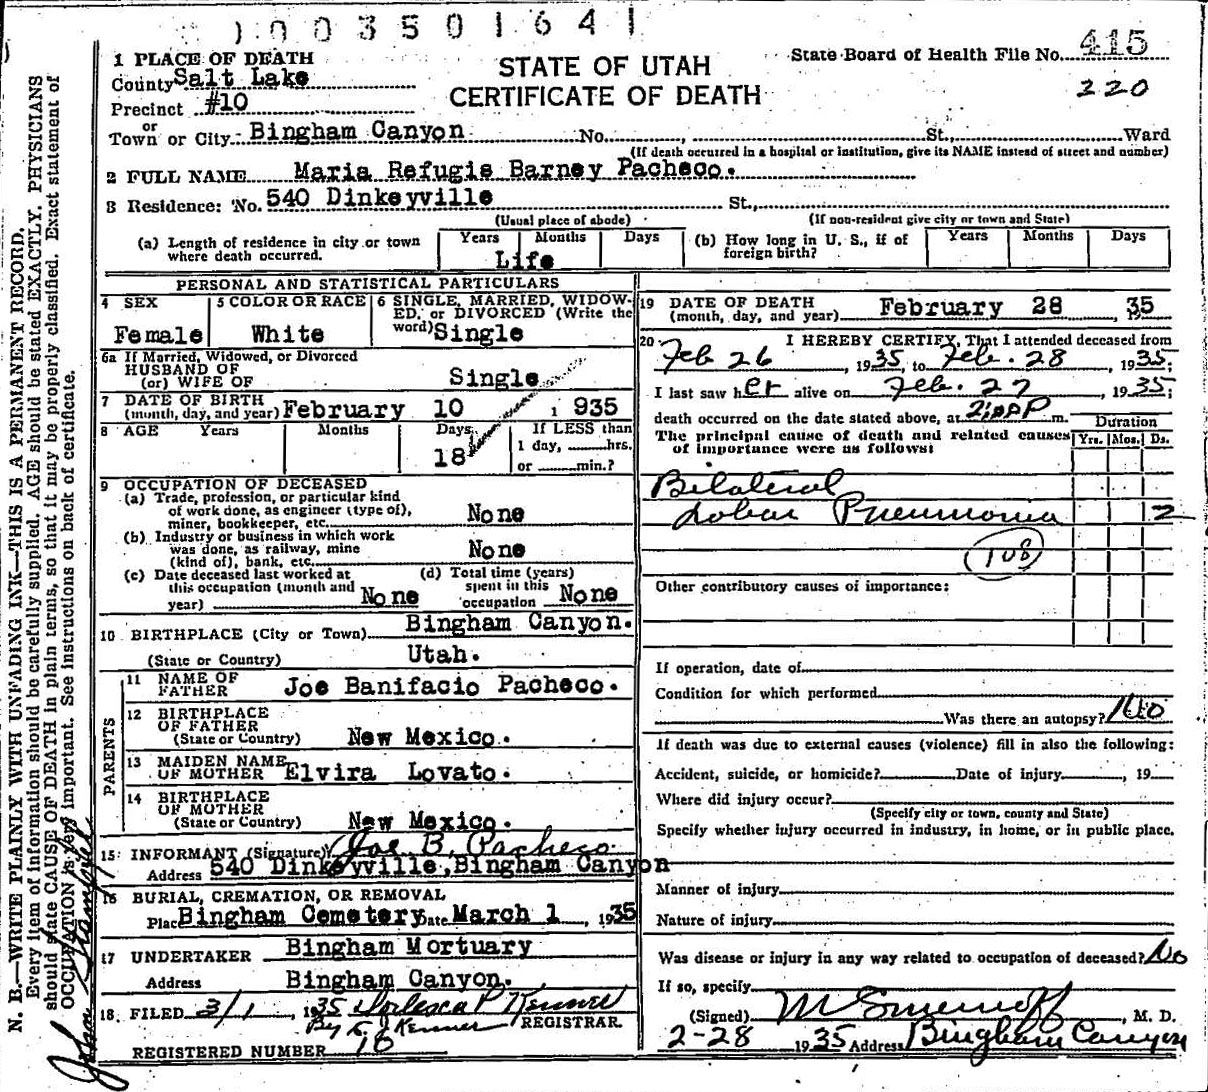 1003501641
State Board of Health File No. 415
220
STATE OF UTAH
CERTIFICATE OF DEATH
1 PLACE OF DEATH
County Salt Lake
Precinct #10
or
Town or City Bingham Canyon No. , St., Ward
(If death occurred in a hospital or institution, give its NAME instead of street and number)
2 FULL NAME Maria Refugis Barney Pacheco.
3 Residence: No. 540 Dinkeyville St.,
(Usual place of abode) (If non-resident give city or town and State)
(a) Length of residence in city or town where death occurred. Years Months Days
Life
(b) How long in U. S., if of foreign birth? Years Months Days
PERSONAL AND STATISTICAL PARTICULARS
4 SEX
Female
5 COLOR OR RACE
White
6 SINGLE, MARRIED, WIDOWED, or DIVORCED (Write the word) Single
6a If Married, Widowed, or Divorced
HUSBAND OF
(or) WIFE OF Single
7 DATE OF BIRTH
(month, day, and year) February 10 1935
8 AGE Years Months Days If LESS than
18 1 day, hrs.
or min.?
9 OCCUPATION OF DECEASED
(a) Trade, profession, or particular kind
of work done, as engineer (type of),
miner, bookkeeper, etc. None
(b) Industry or business in which work
was done, as railway, mine
(kind of), bank, etc. None
(c) Date deceased last worked at
this occupation (month and
year) None
(d) Total time (years)
spent in this
occupation None
10 BIRTHPLACE (City or Town) Bingham Canyon.
(State or Country) Utah.
PARENTS
11 NAME OF
FATHER Joe Banifacio Pacheco.
12 BIRTHPLACE
OF FATHER
(State or Country) New Mexico.
13 MAIDEN NAME
OF MOTHER Elvira Lovato.
14 BIRTHPLACE
OF MOTHER
(State or Country) New Mexico.
15 INFORMANT (Signature) Joe B. Pacheco.
Address 540 Dinkeyville, Bingham Canyon
16 BURIAL, CREMATION, OR REMOVAL
Place Bingham Cemetery Date March 1, 1935
17 UNDERTAKER Bingham Mortuary
Address Bingham Canyon.
18. FILED 3/1, 1935 P Kenner
By E J Kenner REGISTRAR
REGISTERED NUMBER 10
19 DATE OF DEATH
(month, day, and year) February 28 35
20 I HEREBY CERTIFY, That I attended deceased from
Feb 26, 1935, to Feb. 28, 1935;
I last saw her alive on Feb. 27 1935;
death occurred on the date stated above, at 2:00 P m.
The principal cause of death and related causes
of importance were as follows:
Duration
Yrs. Mos. Ds.
Bilateral
Lobar Pneumonia 2
108
Other contributory causes of importance:
If operation, date of
Condition for which performed
Was there an autopsy? No
If death was due to external causes (violence) fill in also the following:
Accident, suicide, or homicide? Date of injury , 19
Where did injury occur?
(Specify city or town, county and State)
Specify whether injury occurred in industry, in home, or in public place.
Manner of injury
Nature of injury
Was disease or injury in any way related to occupation of deceased? No
If so, specify
(Signed) M Smernoff, M. D.
2-28 1935 Address Bingham Canyon
N. B.—WRITE PLAINLY WITH UNFADING INK—THIS IS A PERMANENT RECORD.
Every item of information should be carefully supplied. AGE should be stated EXACTLY. PHYSICIANS
should state CAUSE OF DEATH in plain terms, so that it may be properly classified. Exact statement of
OCCUPATION is very important. See instructions on back of certificate.
John